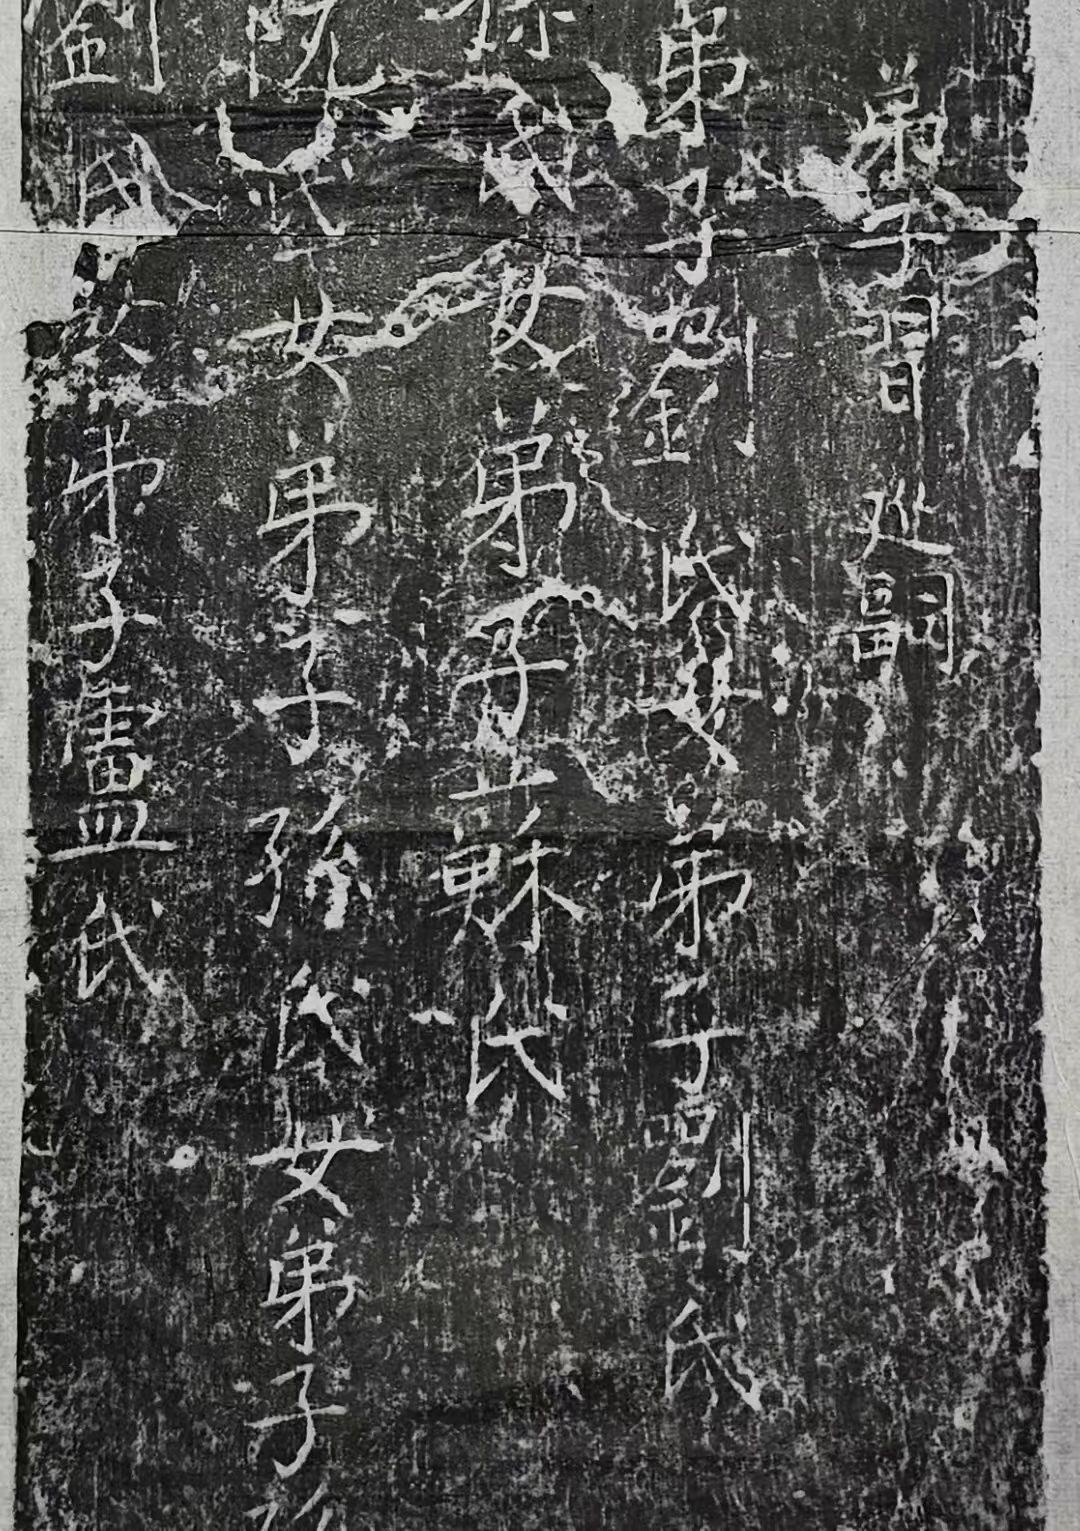 弟子習延嗣
弟子劉氏女弟子劉氏
孫氏女弟子孟蘇氏
女弟子孫氏女弟子孫
劉氏 女弟子盧氏